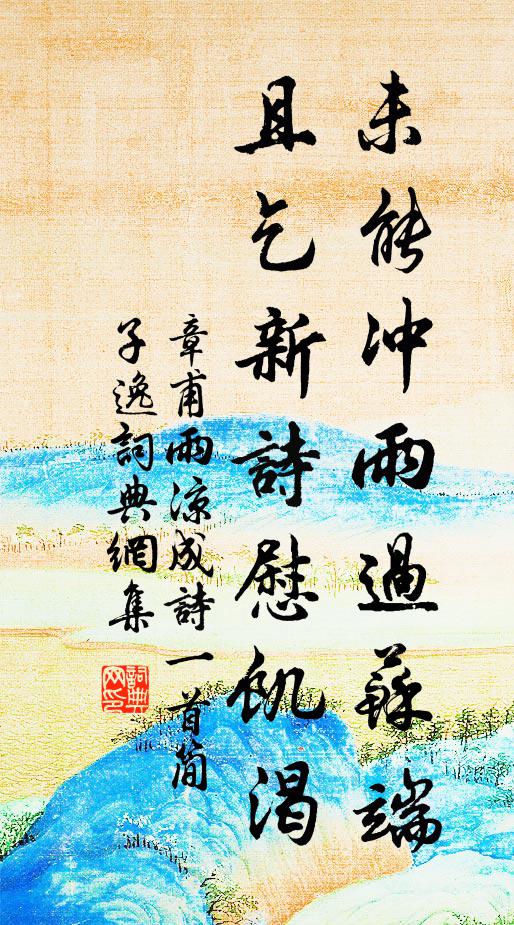 未能冲雨過蘇端
且乞新詩慰飢渴
章甫雨凉成詩一首简
子逸詞典網集
詞典
网印